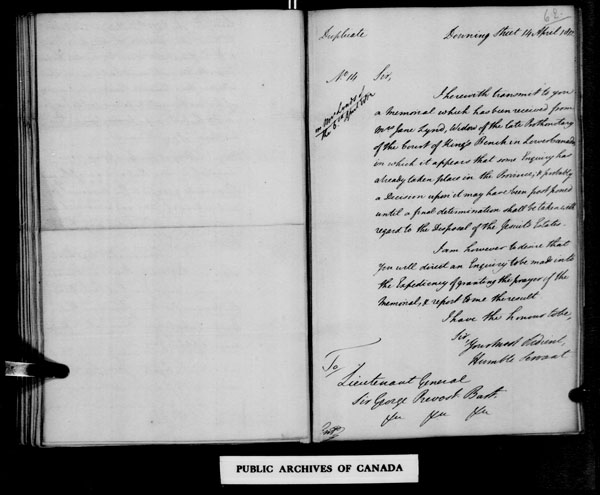 62.
Duplicate
Downing Street 14 April 181
No 14
Sir,
I herewith transmit to you
a Memorial which has been received from
Mrs Jane Lynd, Widow of the late Prothonotary
of the Court of King's Bench in Lower Canada
in which it appears that some Enquiry has
already taken place in the Province, & probably
a Decision upon it may have been postponed
until a final determination shall be taken with
regard to the Disposal of the Jesuits Estates.
I am however to desire that
You will direct an Enquiry to be made into
the Expediency of granting the prayer of the
Memorial, & report to me the result
I have the honour to be,
Sir,
Your most Obedient,
Humble Servant
To
Lieutenant General
Sir George Prevost Bart.
&c &c &c
PUBLIC ARCHIVES OF CANADA